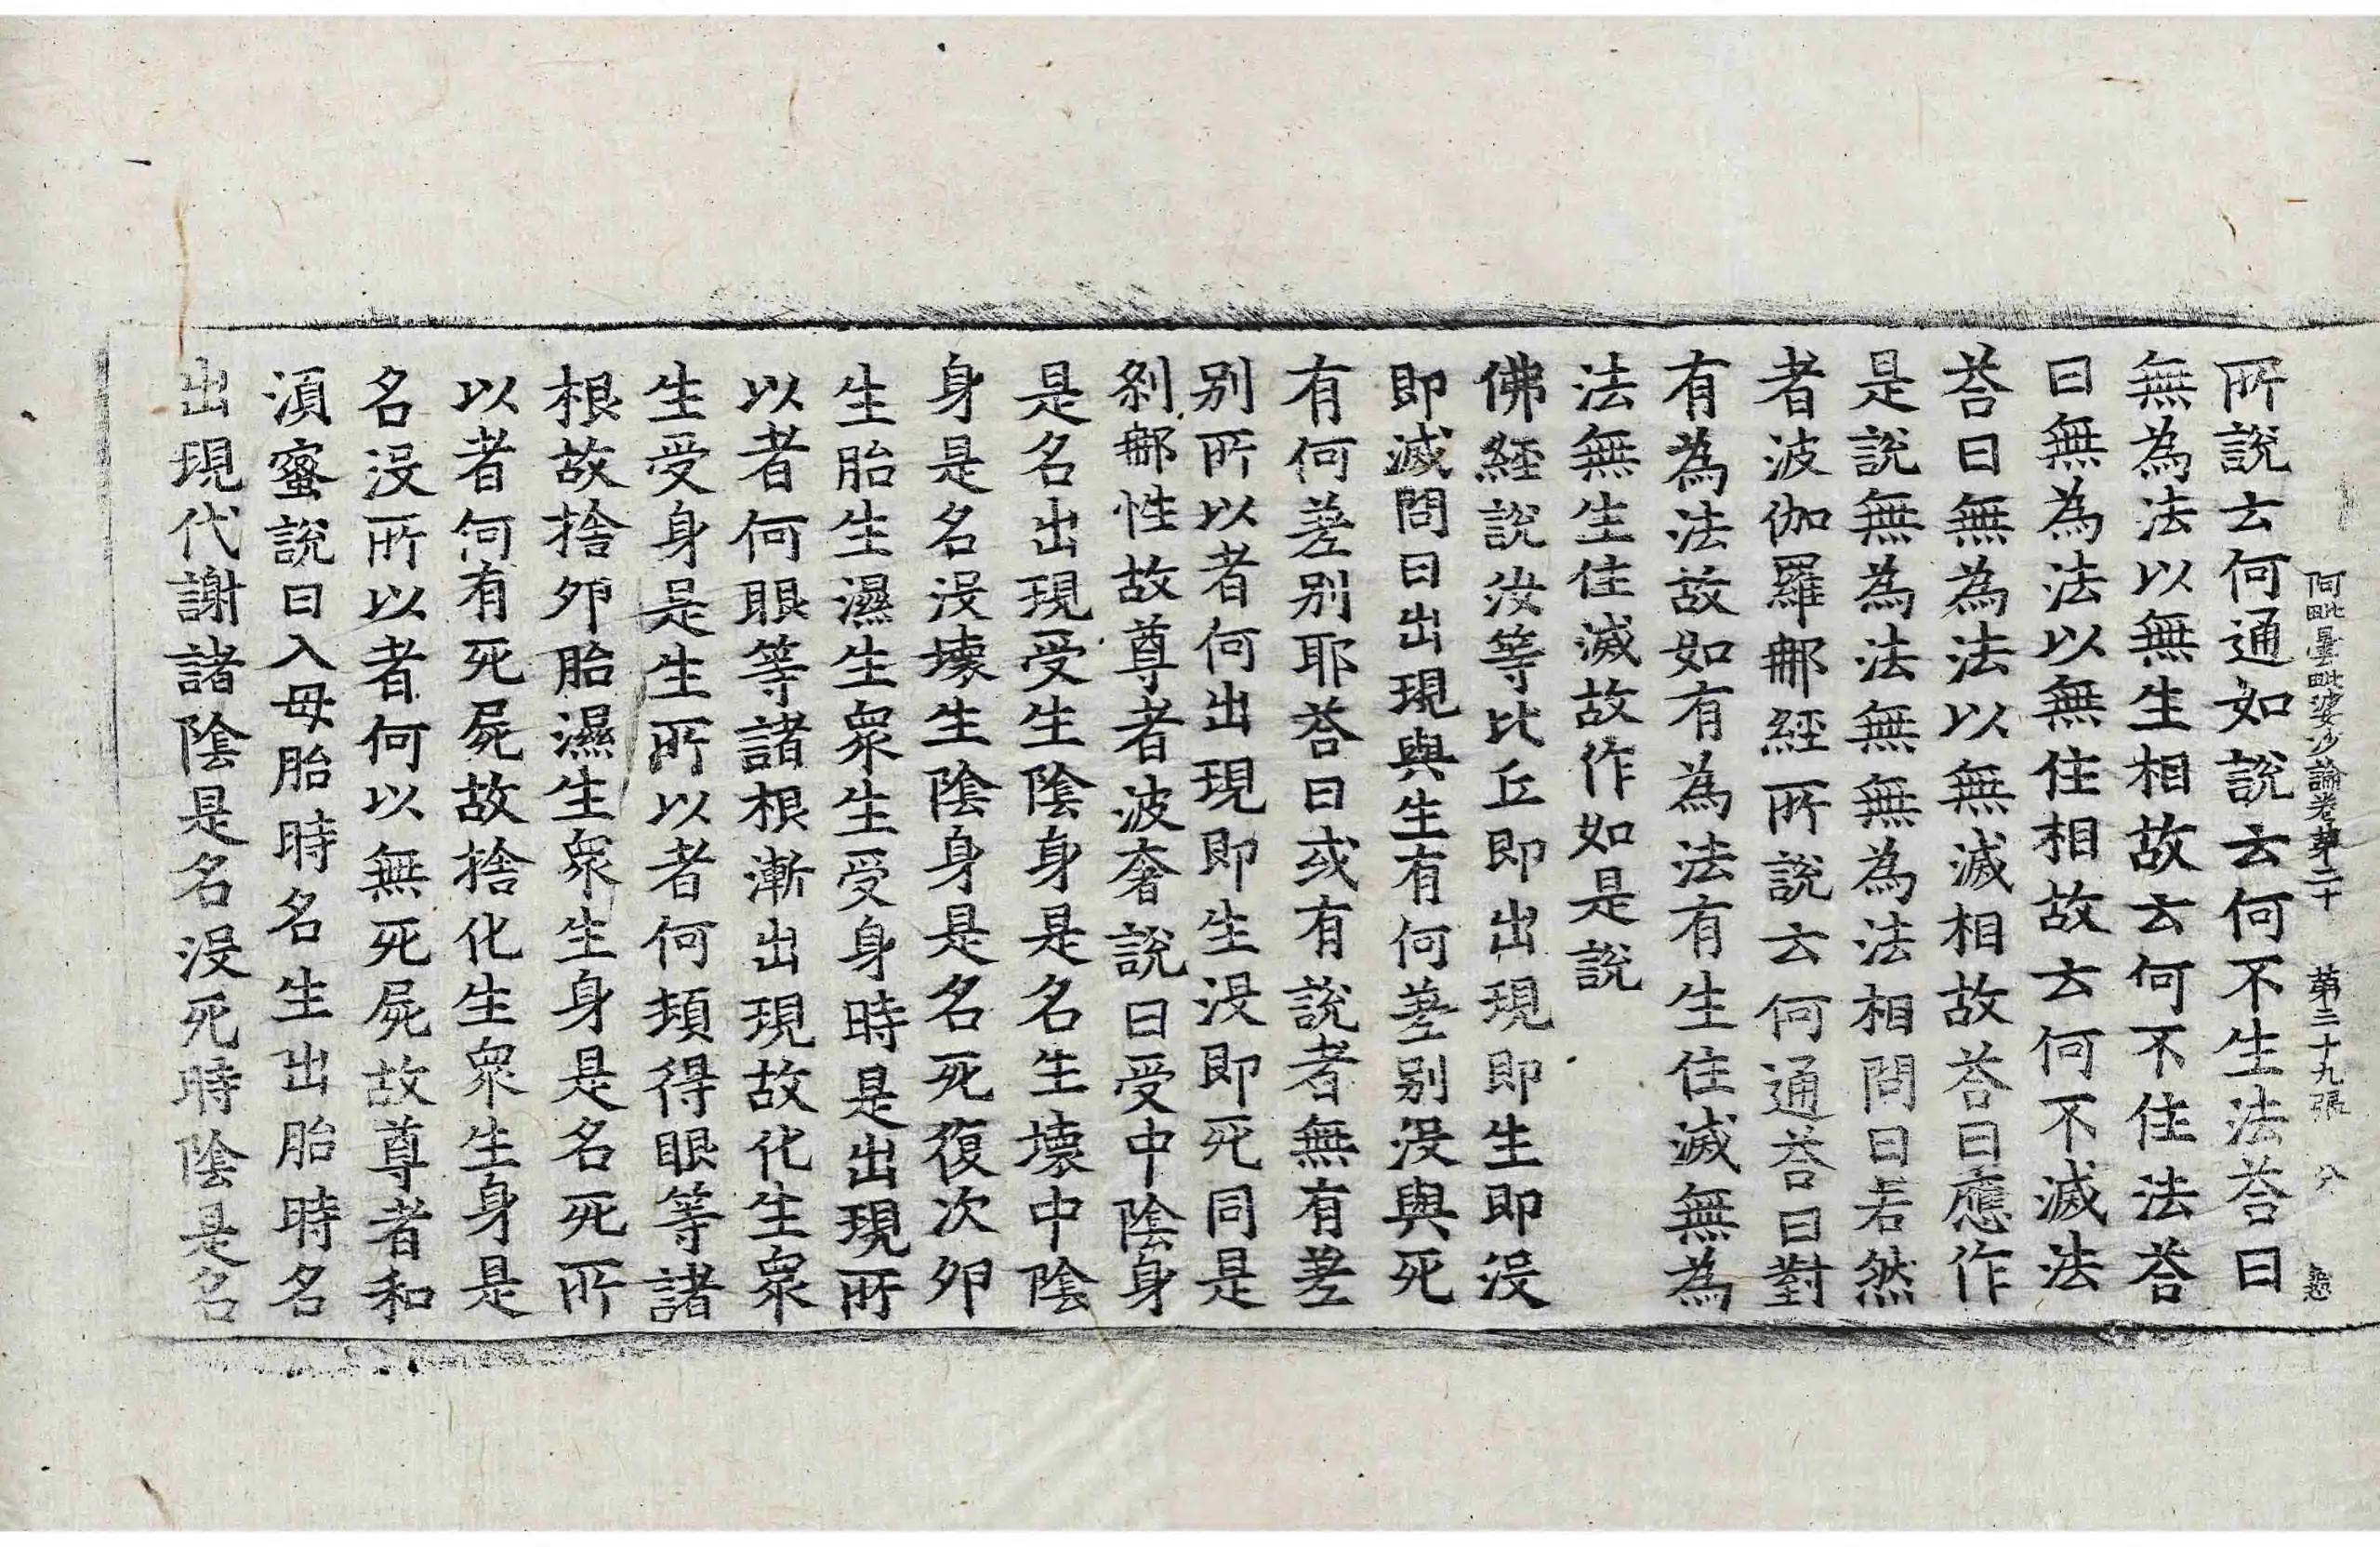 阿毗曇毗婆沙論卷第二十 第二十九張 八
所說云何通如說云何不生法荅曰
無為法以無生相故云何不住法荅
曰無為法以無住相故云何不滅法
荅曰無為法以無滅相故荅曰應作
是說無為法無無為法相問曰若然
者波伽羅郍經所說云何通荅曰對
有為法故如有為法有生住滅無為
法無生住滅故作如是說
佛經說汝等比丘即出現即生即沒
即滅問曰出現與生有何差別沒與死
有何差別耶荅曰或有說者無有差
別所以者何出現即生沒即死同是
剎郍性故尊者波奢說曰受中陰身
是名出現受生陰身是名生壞中陰
身是名沒壞生陰身是名死復次夘
生胎生濕生衆生受身時是出現所
以者何眼等諸根漸出現故化生衆
生受身是生所以者何頓得眼等諸
根故捨夘胎濕生衆生身是名死所
以者何有死屍故捨化生衆生身是
名沒所以者何以無死屍故尊者和
湏蜜說曰入母胎時名生出胎時名
出現代謝諸陰是名沒死時陰是名